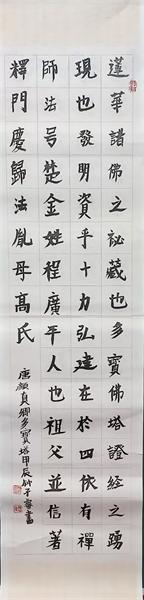 蓮華諸佛之祕藏也多寶佛塔證經之踴
現也發明資乎十力弘建在於四依有禪
師法号楚金姓程廣平人也祖父並信著
釋門慶歸法胤母高氏
唐顏真卿多寶塔甲辰